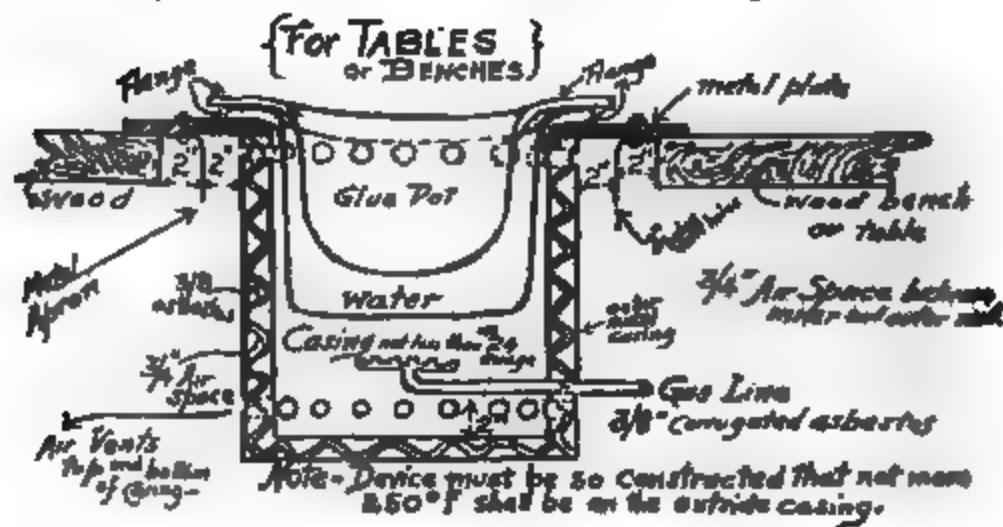 For TABLES
or BENCHES
Flange
Flange
metal plate
2" 2"
2" 2"
Wood
Glue Pot
wood bench
or table
Metal
Apron
3/8
asbestos
Water
outer
metal
casing
3/4" Air Space between
inner and outer
Casing not less than #24
gauge
3/4" Air
space
Gas Line
3/8" corrugated asbestos
2"
Air Vents
top and bottom
of casing-
Note- Device must be so constructed that not more
250° F shall be on the outside casing.